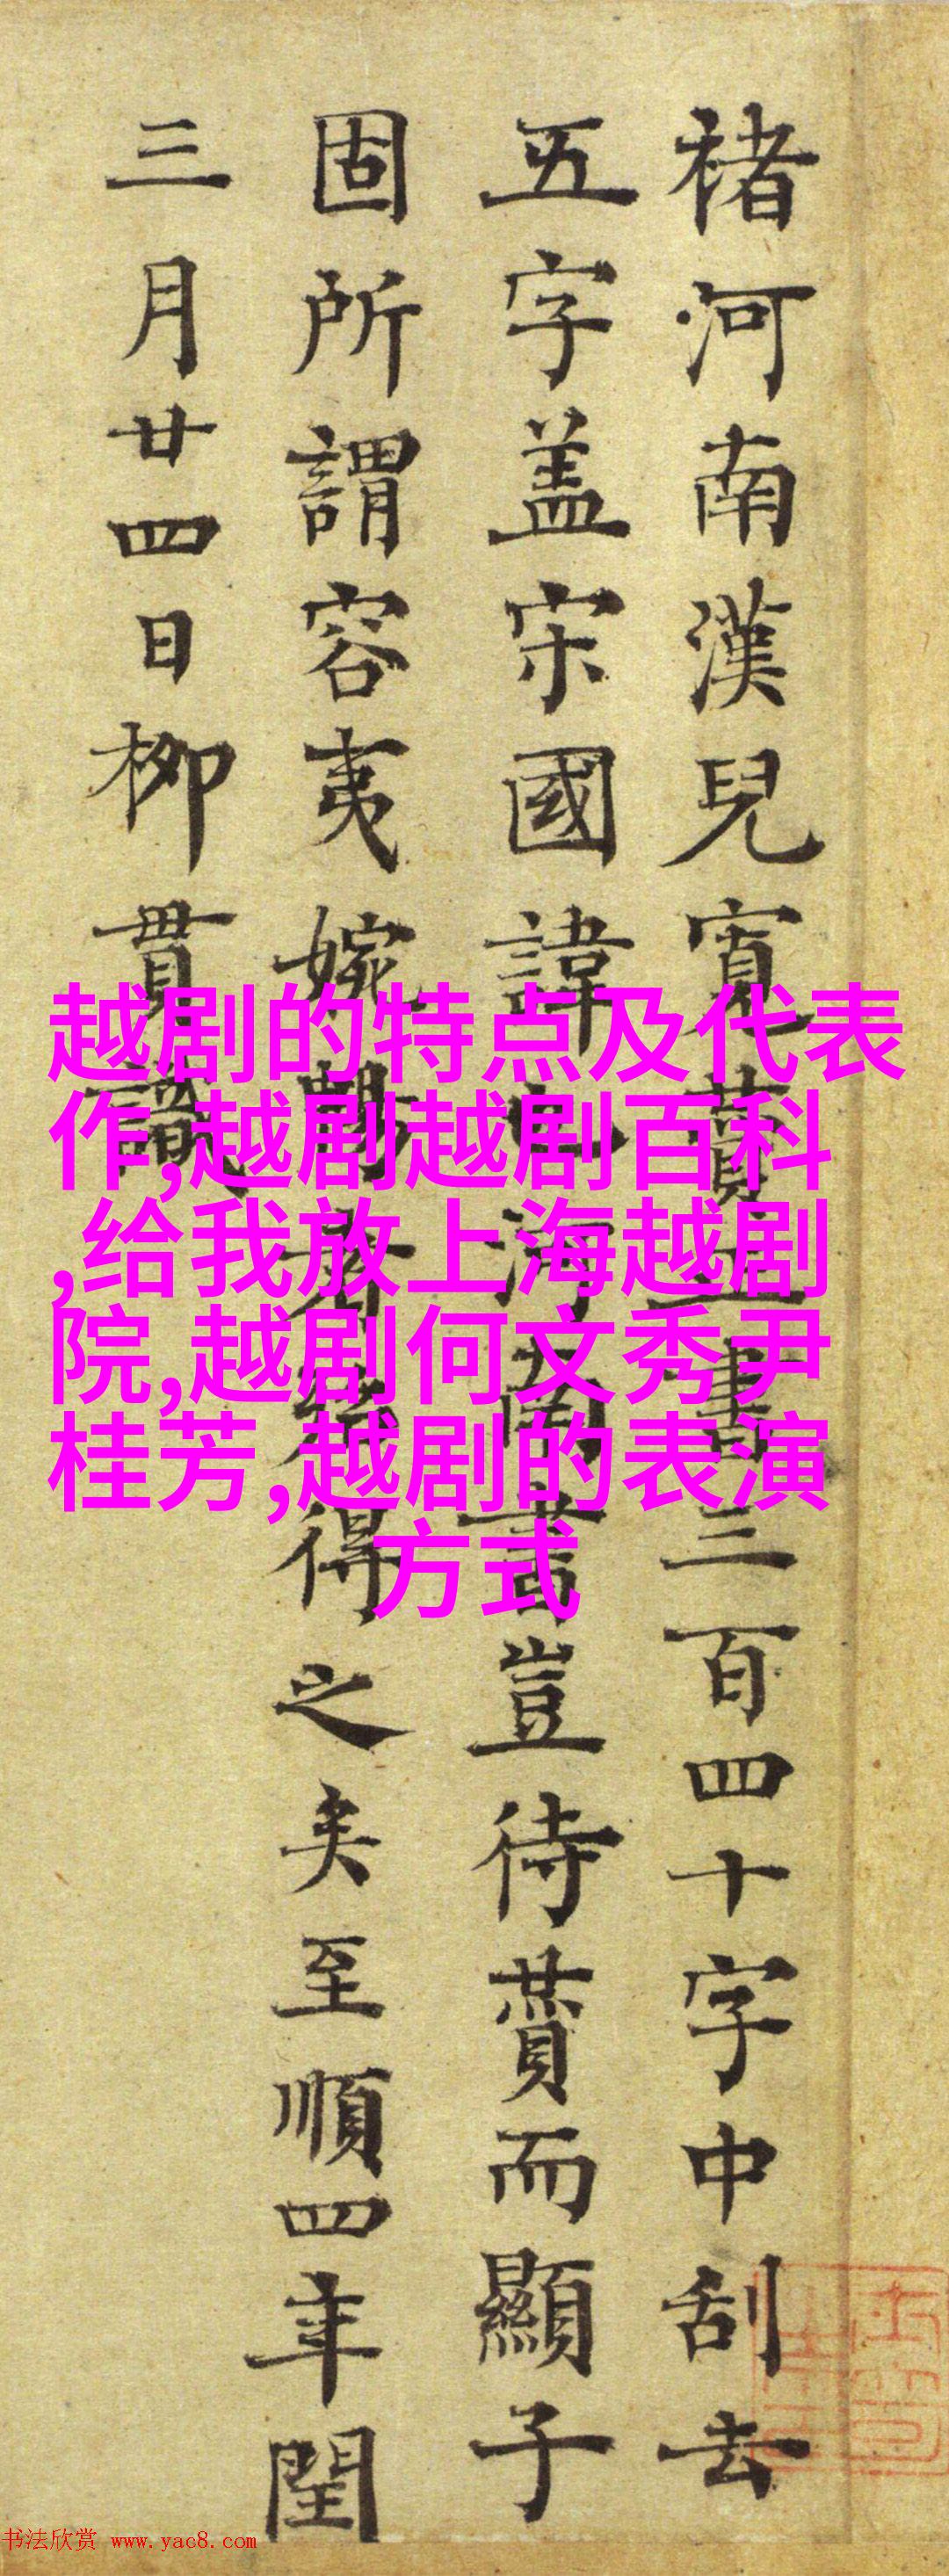 褚河南漢兒寬賛正書三百四十字中刮去
五字盖宋國諱也河南書豈待賛而顯子
固所謂容夷婉暢者得之矣至順四年閏
三月廿四日柳貫識
越剧的特点及代表
作,越剧越剧百科
,给我放上海越剧
院,越剧何文秀尹
桂芳,越剧的表演
方式
书法欣赏 www.yac8.com